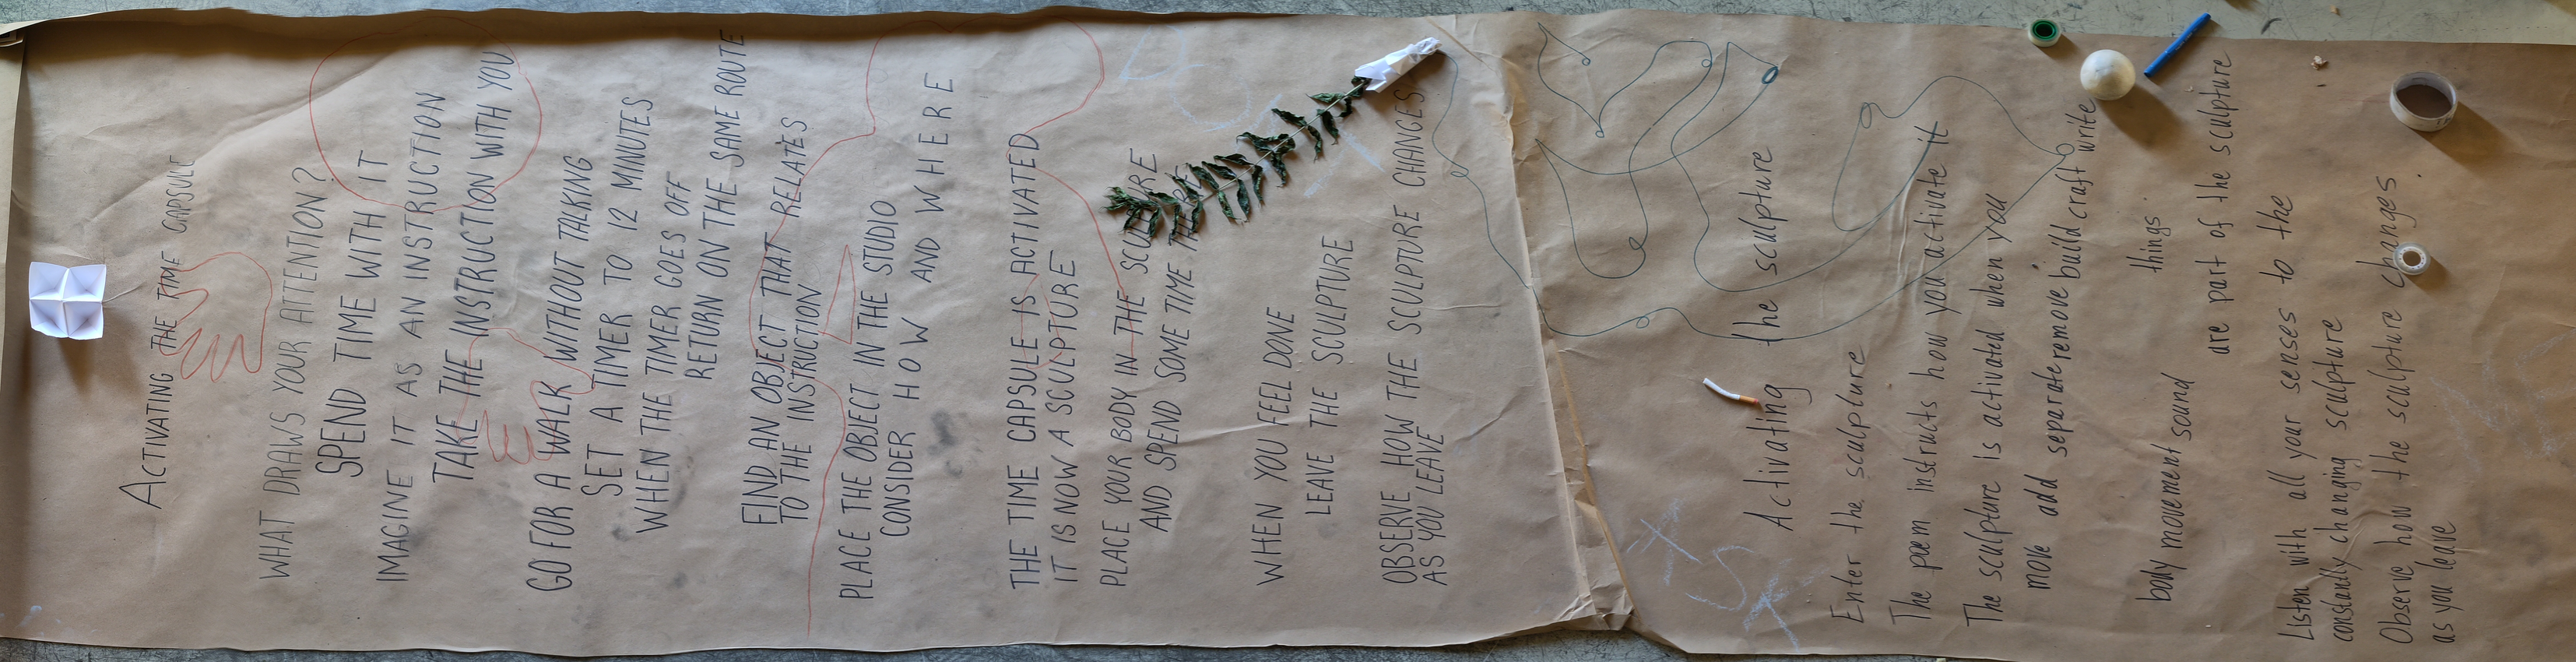 ACTIVATING THE TIME CAPSULE
WHAT DRAWS YOUR ATTENTION?
SPEND TIME WITH IT
IMAGINE IT AS AN INSTRUCTION
TAKE THE INSTRUCTION WITH YOU
GO FOR A WALK WITHOUT TALKING
SET A TIMER TO 12 MINUTES
WHEN THE TIMER GOES OFF
RETURN ON THE SAME ROUTE
FIND AN OBJECT THAT RELATES
TO THE INSTRUCTION
PLACE THE OBJECT IN THE STUDIO
CONSIDER HOW AND WHERE
THE TIME CAPSULE IS ACTIVATED
IT IS NOW A SCULPTURE
PLACE YOUR BODY IN THE SCULPTURE
AND SPEND SOME TIME THERE
WHEN YOU FEEL DONE
LEAVE THE SCULPTURE
OBSERVE HOW THE SCULPTURE CHANGES
AS YOU LEAVE
Activating the sculpture
Enter the sculpture
The poem instructs how you activate it
The sculpture is activated when you
move add separate remove build craft write
things.
body movement sound
are part of the sculpture
Listen with all your senses to the
constantly changing sculpture
Observe how the sculpture changes.
as you leave